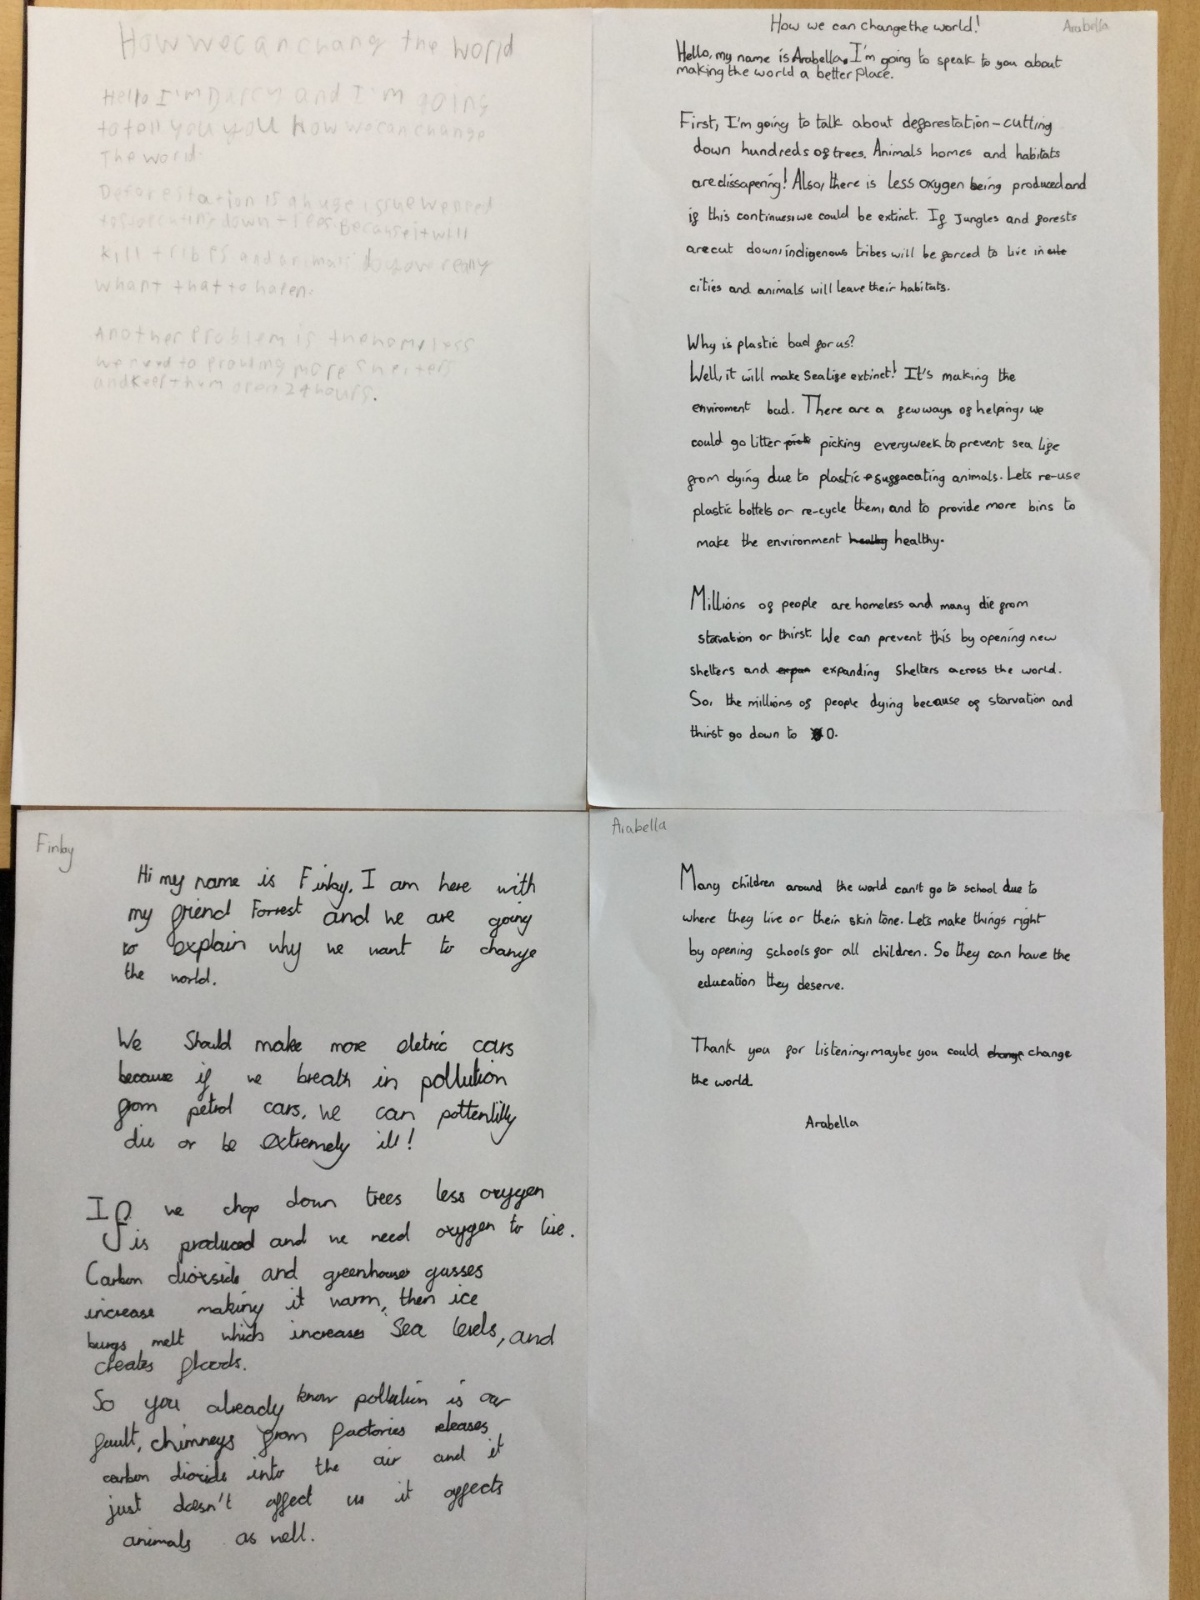 How we can chang the world
Hello I'm Darcy and I'm going
to tell you you how we can change
the world.
Deforestation is a huge issue we need
to stop cuting down trees. Because it will
kill tribes and animals do you really
whant that to hapen.
Another problem is the homeless
we need to more shelters
and keep them open 24 hours.
How we can change the world!
Arabella
Hello, my name is Arabella. I'm going to speak to you about
making the world a better place.
First, I'm going to talk about deforestation - cutting
down hundreds of trees. Animals homes and habitats
are dissapering! Also, there is less oxygen being produced and
if this continues, we could be extinct. If jungles and forests
are cut down, indigenous tribes will be forced to live in
cities and animals will leave their habitats.
Why is plastic bad for us?
Well, it will make sealife extinct! It's making the
enviroment bad. There are a few ways of helping, we
could go litter pick picking everyweek to prevent sea life
from dying due to plastic suffacating animals. Lets re-use
plastic bottels or re-cycle them, and to provide more bins to
make the environment healthy.
Millions of people are homeless and many die from
starvation or thirst. We can prevent this by opening new
shelters and expan expanding shelters across the world.
So, the millions of people dying because of starvation and
thirst go down to 0.
Finby
Hi my name is Finby. I am here with
my friend Forrest and we are going
to explain why we want to change
the world.
We should make more eletric cars
because if we breath in pollution
from petrol cars, we can pottentilly
die or be extremely ill!
If we chop down trees less oxygen
is produced and we need oxygen to live.
Carbon dioxside and greenhouse gasses
increase making it warm, then ice
burgs melt which increases sea levels, and
creates floods.
So you already know pollution is our
fault, chimneys from factories releases
carbon dioxide into the air and it
just doesn't affect us it affects
animals as well.
Arabella
Many children around the world can't go to school due to
where they live or their skin tone. Lets make things right
by opening schools for all children. So they can have the
education they deserve.
Thank you for listening, maybe you could change change
the world.
Arabella